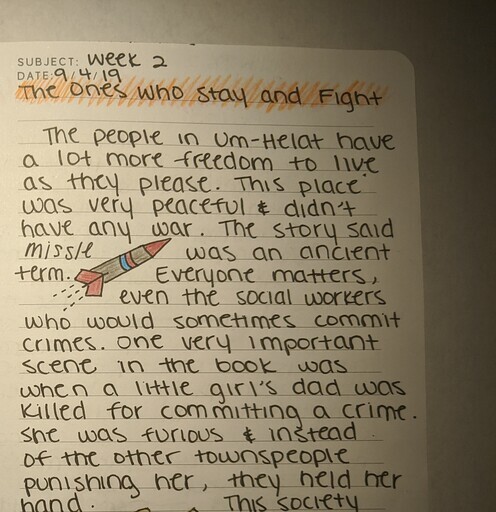 SUBJECT: Week 2
DATE: 9/4/19
The Ones Who Stay and Fight
The people in Um-Helat have
a lot more freedom to live
as they please. This place
was very peaceful & didn't
have any war. The story said
missle was an ancient
term. Everyone matters,
even the social workers
who would sometimes commit
crimes. One very important
scene in the book was
when a little girl's dad was
killed for committing a crime.
She was furious & instead
of the other townspeople
punishing her, they held her
hand. This society